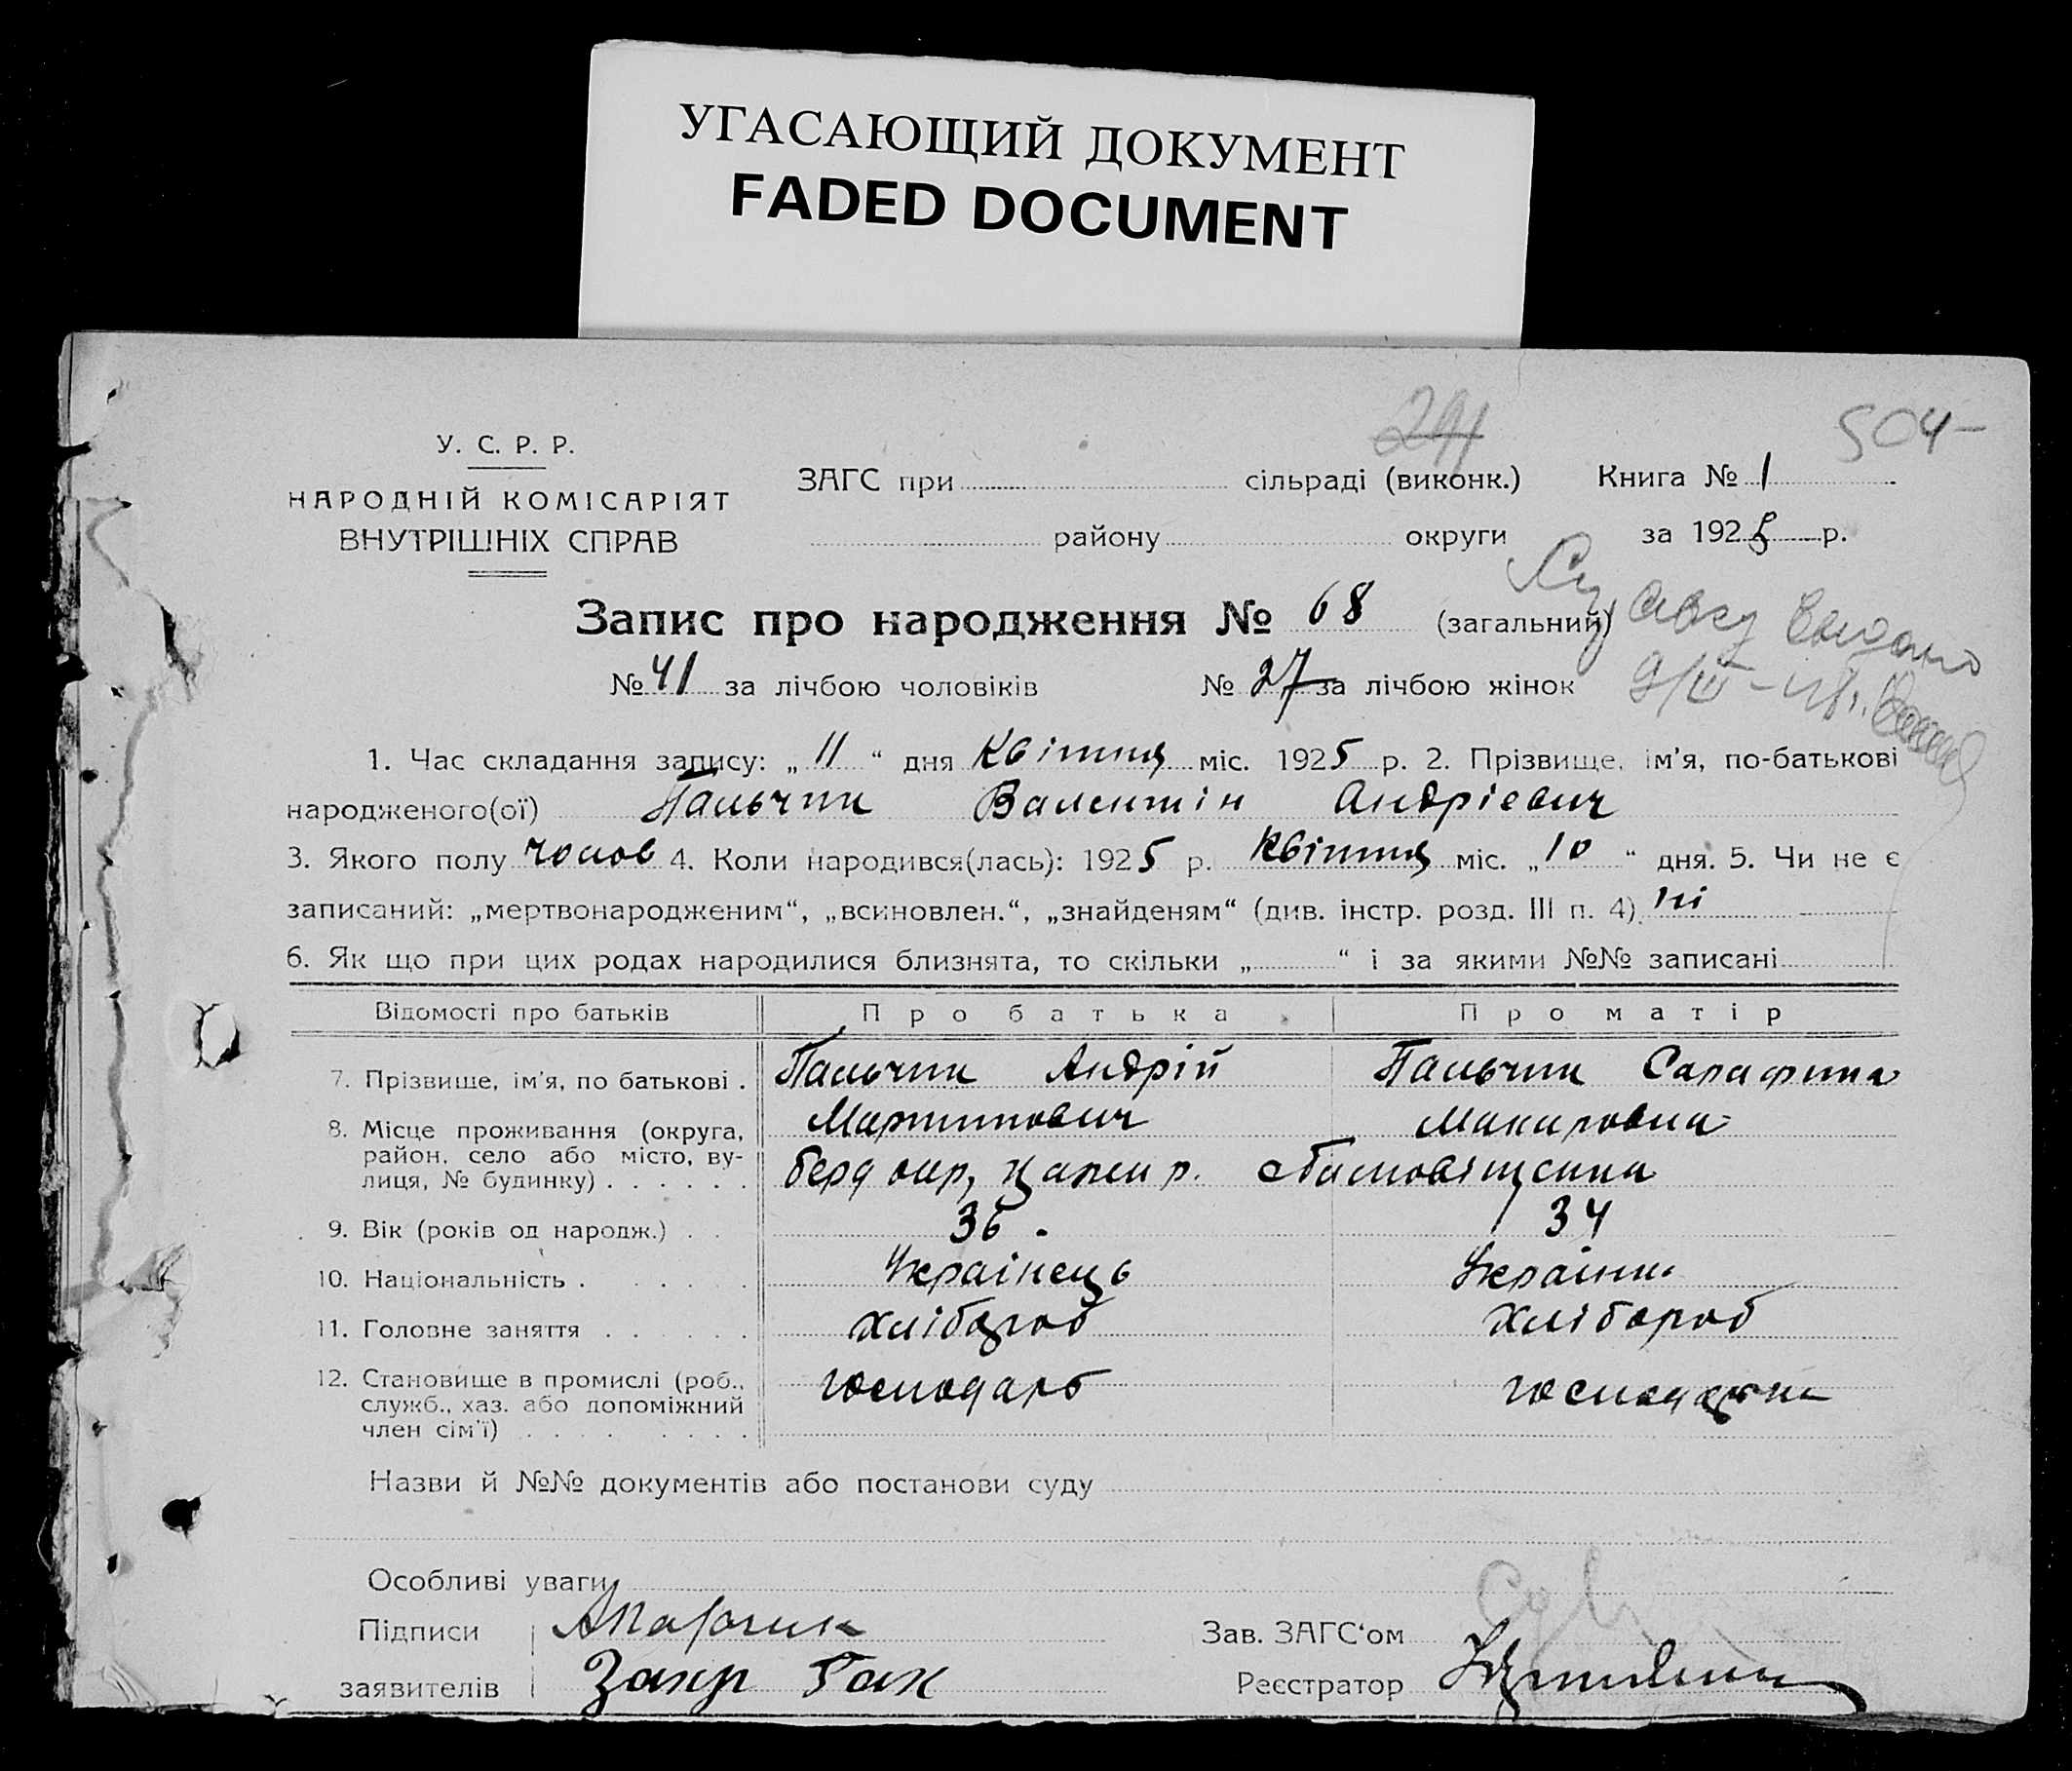 УГАСАЮЩИЙ ДОКУМЕНТ
FADED DOCUMENT
504-
291
У. С. Р. Р.
НАРОДНІЙ КОМІСАРІЯТ
ВНУТРІШНІХ СПРАВ
ЗАГС при сільраді (виконк.) Книга № 1
району округи за 1925 р.
Запис про народження № 68 (загальний)
№ 41 за лічбою чоловіків № 27 за лічбою жінок
1. Час складання запису: „ 11 “ дня Квітня міс. 1925 р. 2. Прізвище, ім'я, по-батькові
народженого(ої) Пальчик Валентін Андріевич
3. Якого полу чолов 4. Коли народився(лась): 1925 р. Квітня міс. „ 10 “ дня. 5. Чи не є
записаний: „мертвонародженим“, „всиновлен.“, „знайденям“ (див. інстр. розд. III п. 4) ні
6. Як що при цих родах народилися близнята, то скільки „ “ і за якими №№ записані
Відомості про батьків Про батька Про матір
7. Прізвище, ім'я, по батькові . Пальчик Андрій Пальчик Сарафина
Мартинович Макаровна
8. Місце проживання (округа,
район, село або місто, ву-
лиця, № будинку) . . . . . . Берд окр,
9. Вік (років од народж.) . . 36 . 34
10. Національність . . . . . Українець Українка
11. Головне заняття . . . . . . хлібороб хлібороб
12. Становище в промислі (роб.,
служб., хаз. або допоміжний
член сім'ї) . . . . . . . . господарь
Назви й №№ документів або постанови суду
Особливі уваги
Підписи Зав. ЗАГС‘ом
заявителів Реєстратор